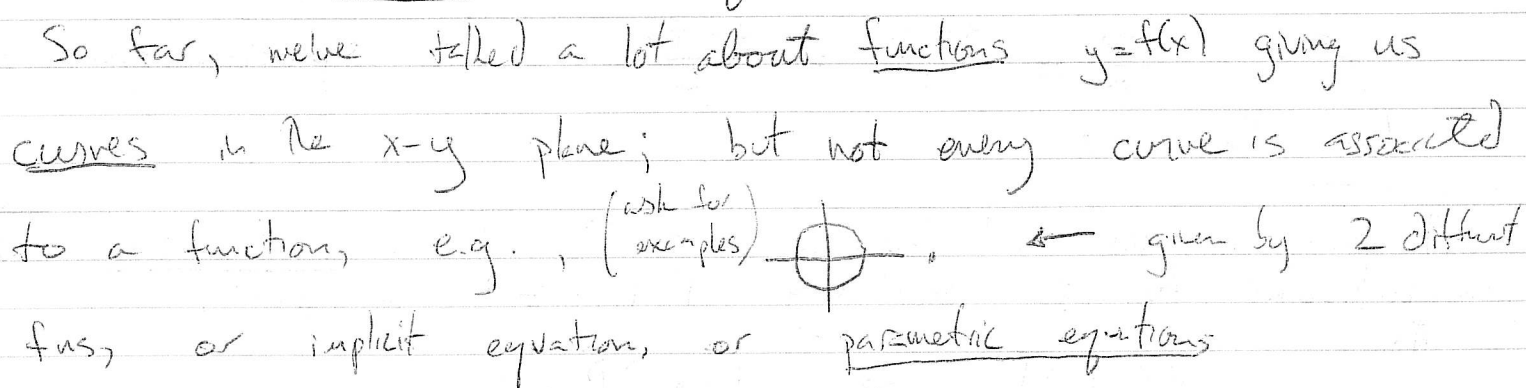 So far, we've talked a lot about functions y=f(x) giving us
curves in the x-y plane; but not every curve is associated
to a function, e.g., (ask for examples) . ← given by 2 different
fns, or implicit equation, or parametric equations